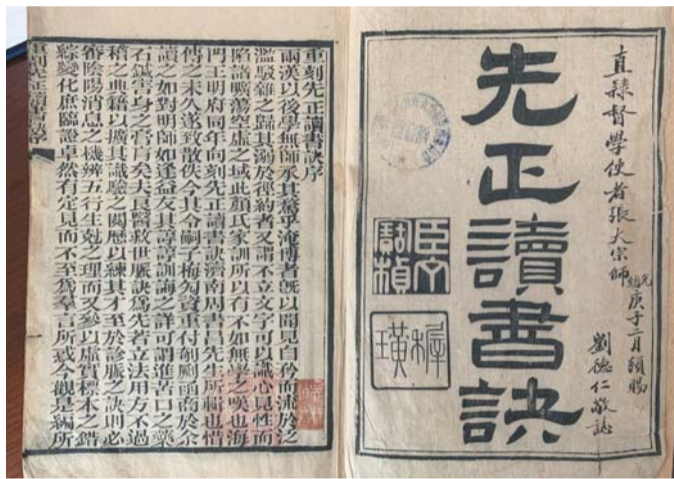 直隸督學使者張大宗師
光緒庚子二月頒賜
劉德仁敬誌
先正讀書訣
重刻先正讀書訣序
兩漢以後學無師承其驁乎淹博者旣以聞見自矜而流於泛
濫駁雜之歸其溺於徑約者又謂不立文字可以識心見性而
陷諸曠蕩空虛之域此顏氏家訓所以有不如無學之嘆也海
門王明府同年向刻先正讀書訣濟南周書昌先生所輯也惜
傳之未久遂致散佚今其令嗣子梅勼資重付剞劂函商於余
讀之如對明師如逢益友其諄諄訓誨之詳可謂進苦口之藥
石鍼害身之膏肓矣夫良醫救世脈訣爲先若立法用方不過
稽之典籍以擴其識驗之閱歷以練其才至於診脈之訣則必
審陰陽消息之機辨五行生尅之理而又參以虛實標本之錯
綜變化庶臨證卓然有定見而不至爲羣言所惑今觀是編所
重刻先正讀書訣序